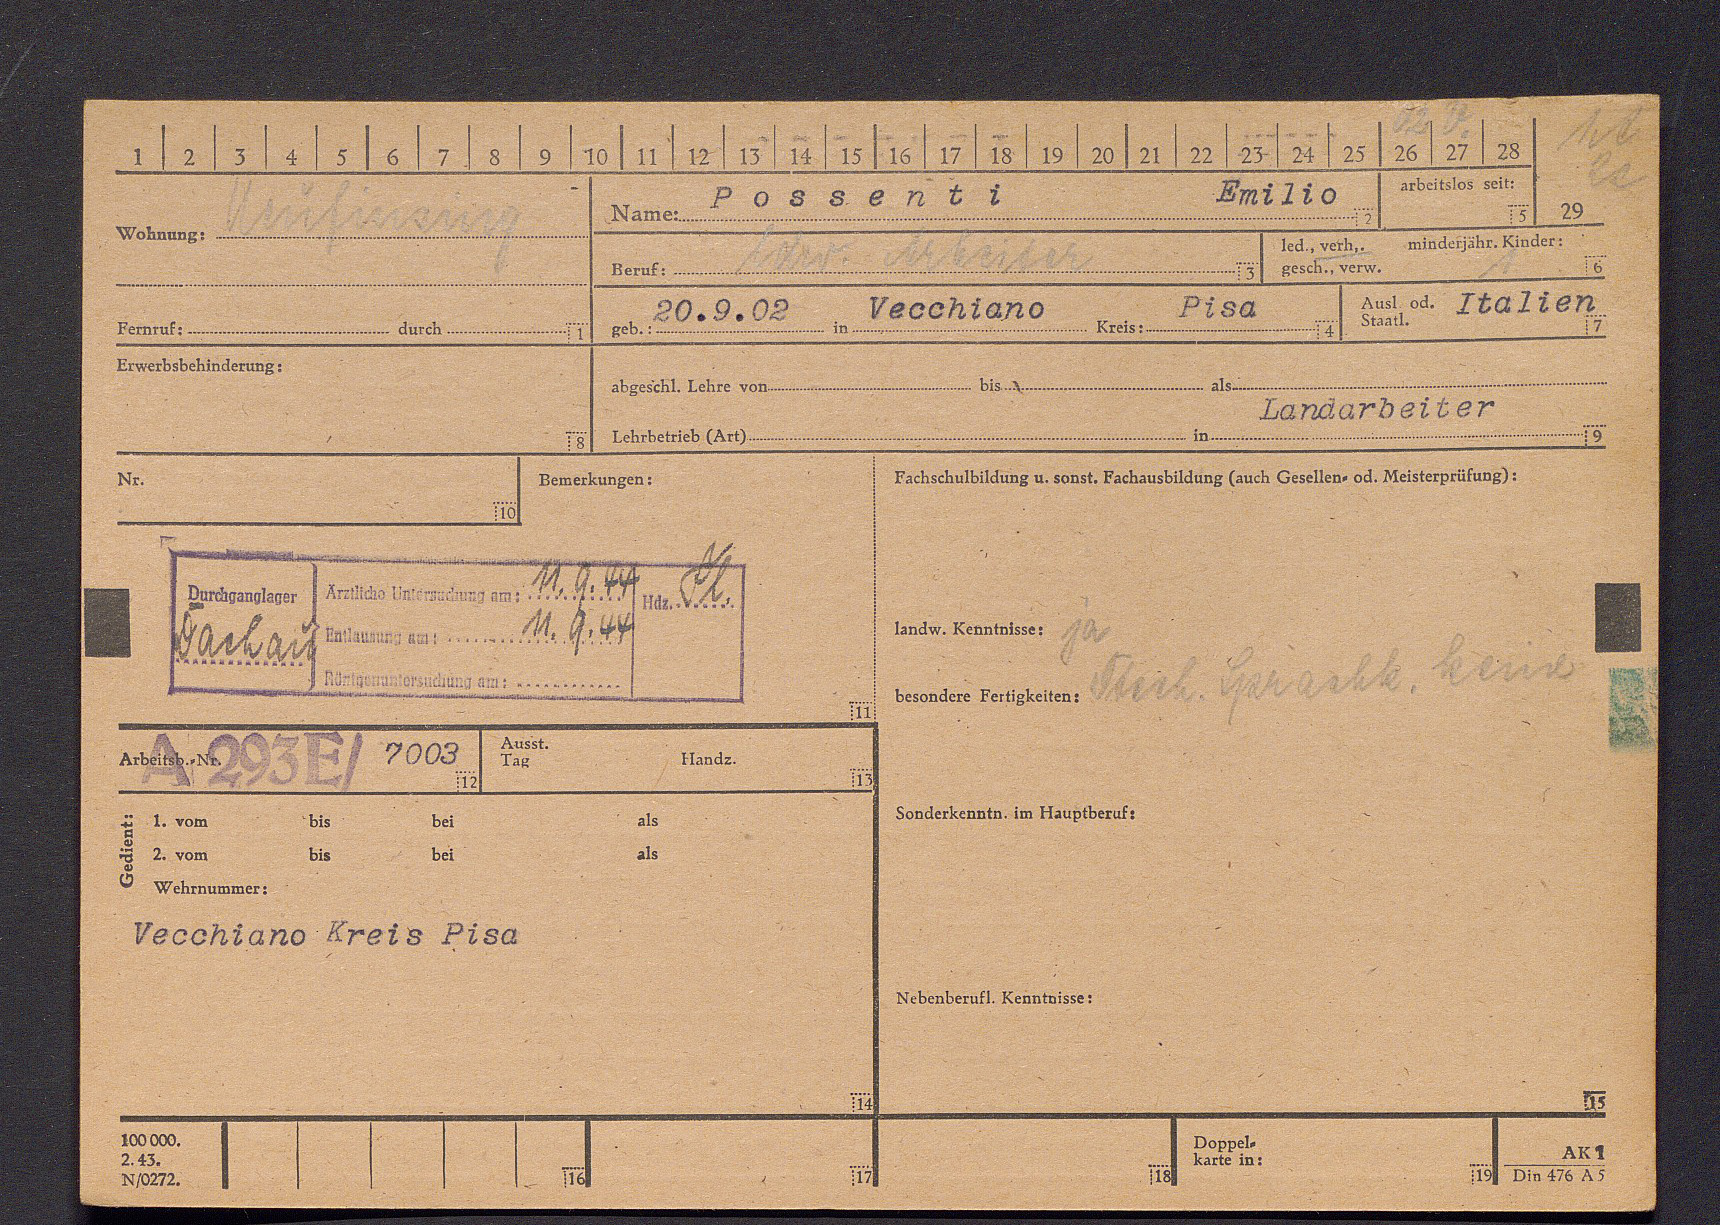 1 2 3 4 5 6 7 8 9 10 11 12 13 14 15 16 17 18 19 20 21 22 23 24 25 26 27 28
29
Wohnung:
Name: Possenti Emilio 2
arbeitslos seit: 5
Beruf: ldw. Arbeiter 3
led., verh., minderjähr. Kinder:
gesch., verw. 1 6
Fernruf: durch 1
geb.: 20.9.02 in Vecchiano Kreis: Pisa 4
Ausl. od. Staatl. Italien 7
Erwerbsbehinderung:
8
abgeschl. Lehre von bis als
Landarbeiter
Lehrbetrieb (Art) in 9
Nr.
10
Bemerkungen:
Durchganglager
Dachau
Ärztliche Untersuchung am: 11.9.44
Entlausung am: 11.9.44
Röntgenuntersuchung am:
Hdz.
11
Fachschulbildung u. sonst. Fachausbildung (auch Gesellen- od. Meisterprüfung):
landw. Kenntnisse: ja
besondere Fertigkeiten: keine
Arbeitsb.-Nr. A 293E/ 7003 12
Ausst. Tag Handz. 13
Gedient:
1. vom bis bei als
2. vom bis bei als
Wehrnummer:
Vecchiano Kreis Pisa
14
Sonderkenntn. im Hauptberuf:
Nebenberufl. Kenntnisse:
15
100 000.
2. 43.
N/0272.
16
17
18
Doppel-
karte in:
19
AK 1
Din 476 A 5